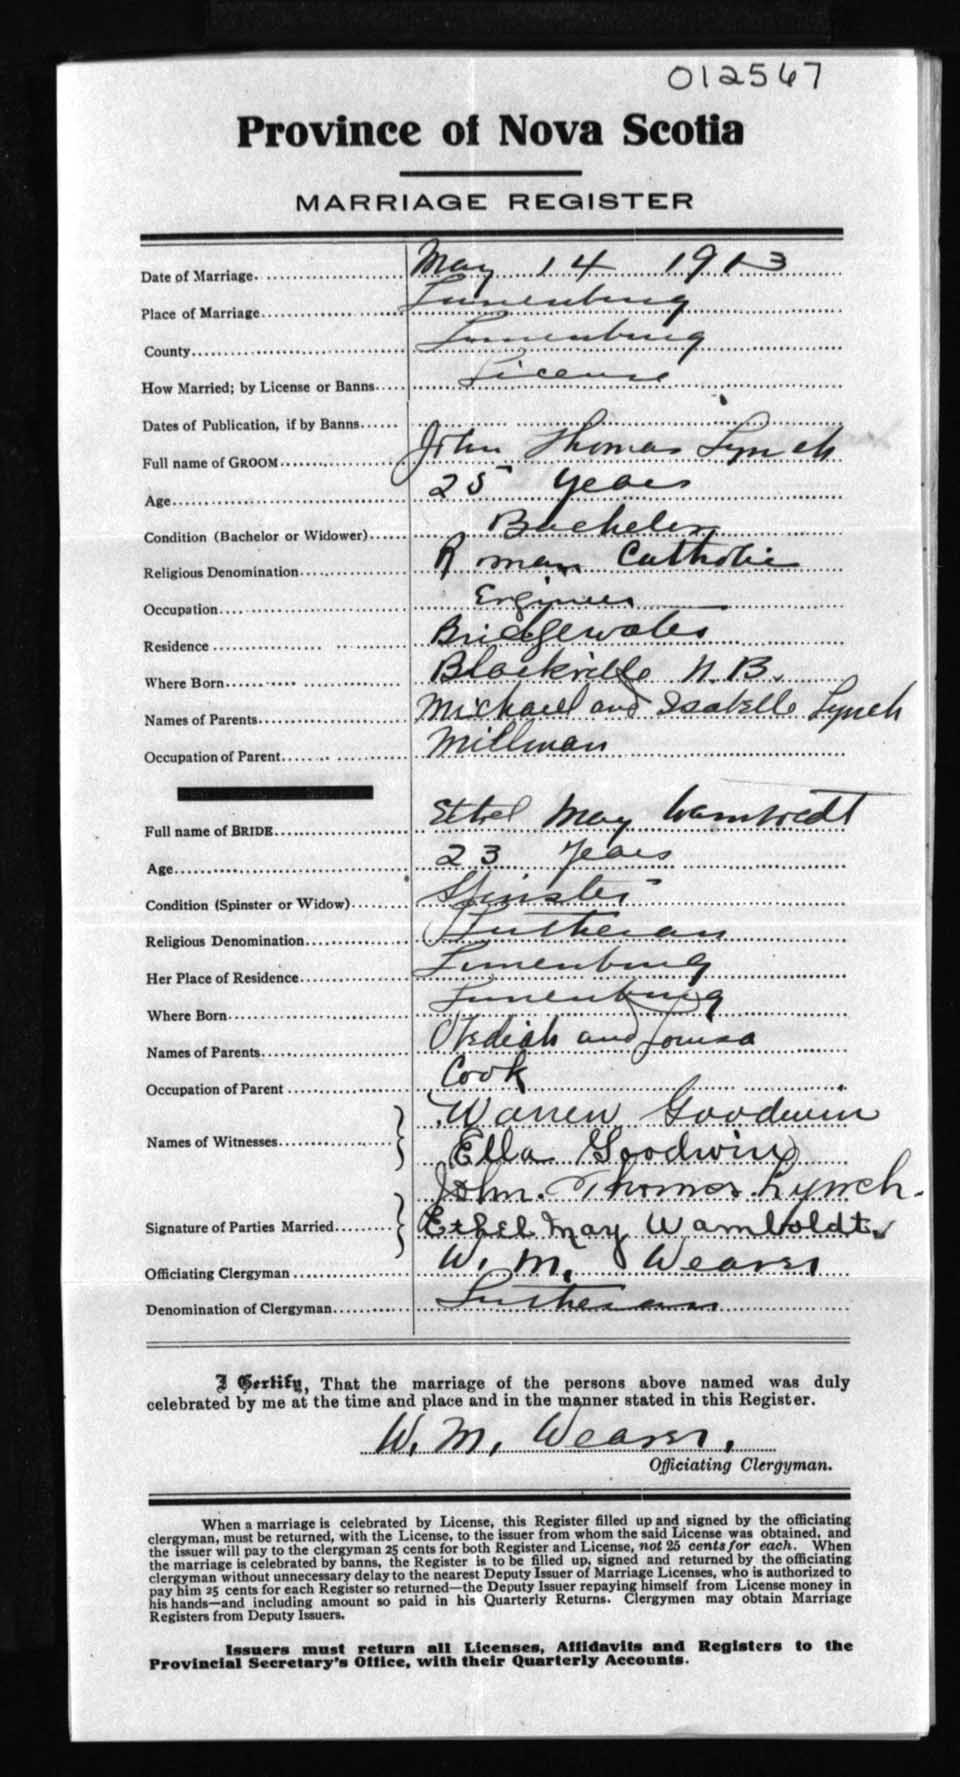 012567
Province of Nova Scotia
MARRIAGE REGISTER
Date of Marriage May 14 1913
Place of Marriage Lunenburg
County Lunenburg
How Married; by License or Banns License
Dates of Publication, if by Banns
Full name of GROOM John Thomas Lynch
Age 25 Years
Condition (Bachelor or Widower) Bachelor
Religious Denomination Roman Catholic
Occupation Engineer
Residence Bridgewater
Where Born Blackville N.B.
Names of Parents Michael and Isabelle Lynch
Occupation of Parent Millman
Full name of BRIDE Ethel May Wamboldt
Age 23 Years
Condition (Spinster or Widow) Spinster
Religious Denomination Lutheran
Her Place of Residence Lunenburg
Where Born Lunenburg
Names of Parents Obediah and Louisa
Occupation of Parent Cook
Names of Witnesses Warren Goodwin
Ella Goodwin
Signature of Parties Married John Thomas Lynch.
Ethel May Wamboldt.
Officiating Clergyman W. M. Weaver
Denomination of Clergyman Lutheran
I Certify, That the marriage of the persons above named was duly
celebrated by me at the time and place and in the manner stated in this Register.
W. M. Weaver.
Officiating Clergyman.
When a marriage is celebrated by License, this Register filled up and signed by the officiating
clergyman, must be returned, with the License, to the issuer from whom the said License was obtained, and
the issuer will pay to the clergyman 25 cents for both Register and License, not 25 cents for each. When
the marriage is celebrated by banns, the Register is to be filled up, signed and returned by the officiating
clergyman without unnecessary delay to the nearest Deputy Issuer of Marriage Licenses, who is authorized to
pay him 25 cents for each Register so returned—the Deputy Issuer repaying himself from License money in
his hands—and including amount so paid in his Quarterly Returns. Clergymen may obtain Marriage
Registers from Deputy Issuers.
Issuers must return all Licenses, Affidavits and Registers to the
Provincial Secretary's Office, with their Quarterly Accounts.